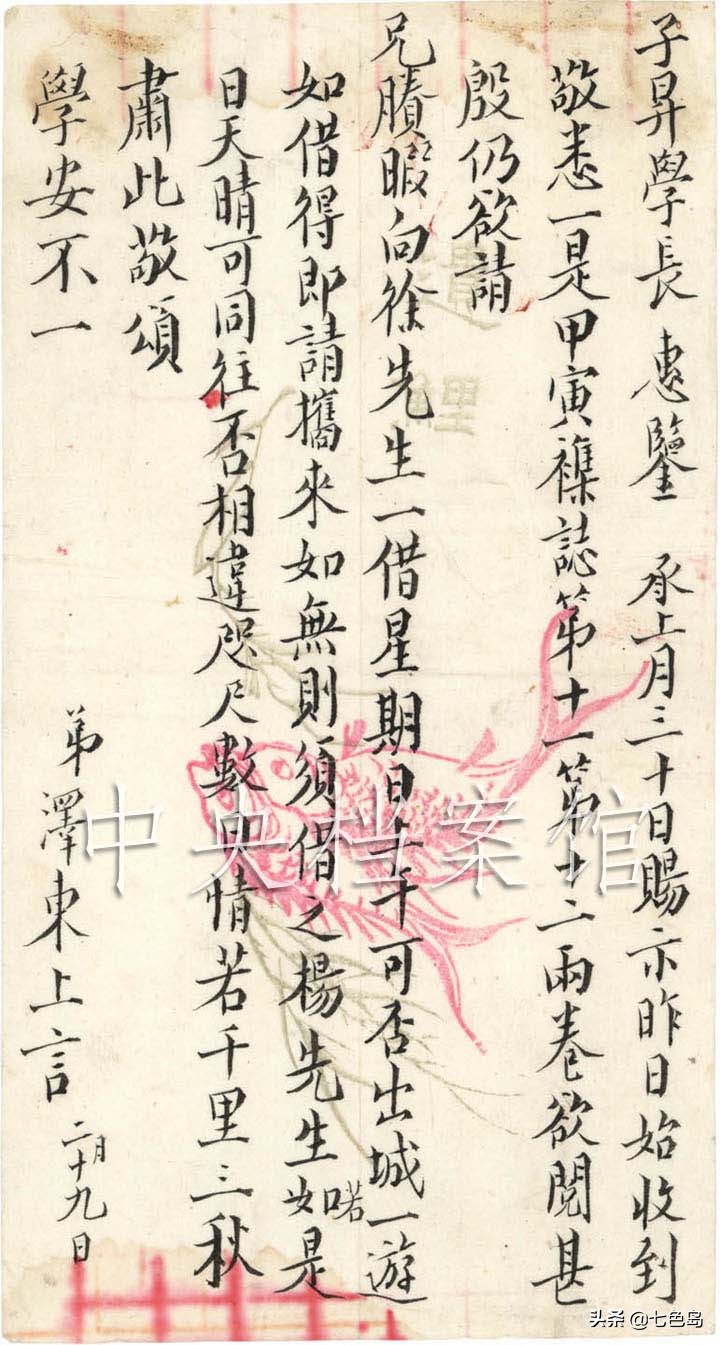 子昇學長 惠鑒 承上月三十日賜示昨日始收到
敬悉一是甲寅襍誌第十一第十二兩卷欲閱甚
殷仍欲請
兄賸暇向徐先生一借星期日上午可否出城一游
如借得即請攜來如無則須借之楊先生如是
日天晴可同往否相違咫尺數日情若千里三秋
肅此敬頌
學安不一
弟澤東上言 二月十九日
中央档案馆
头条 @七色岛